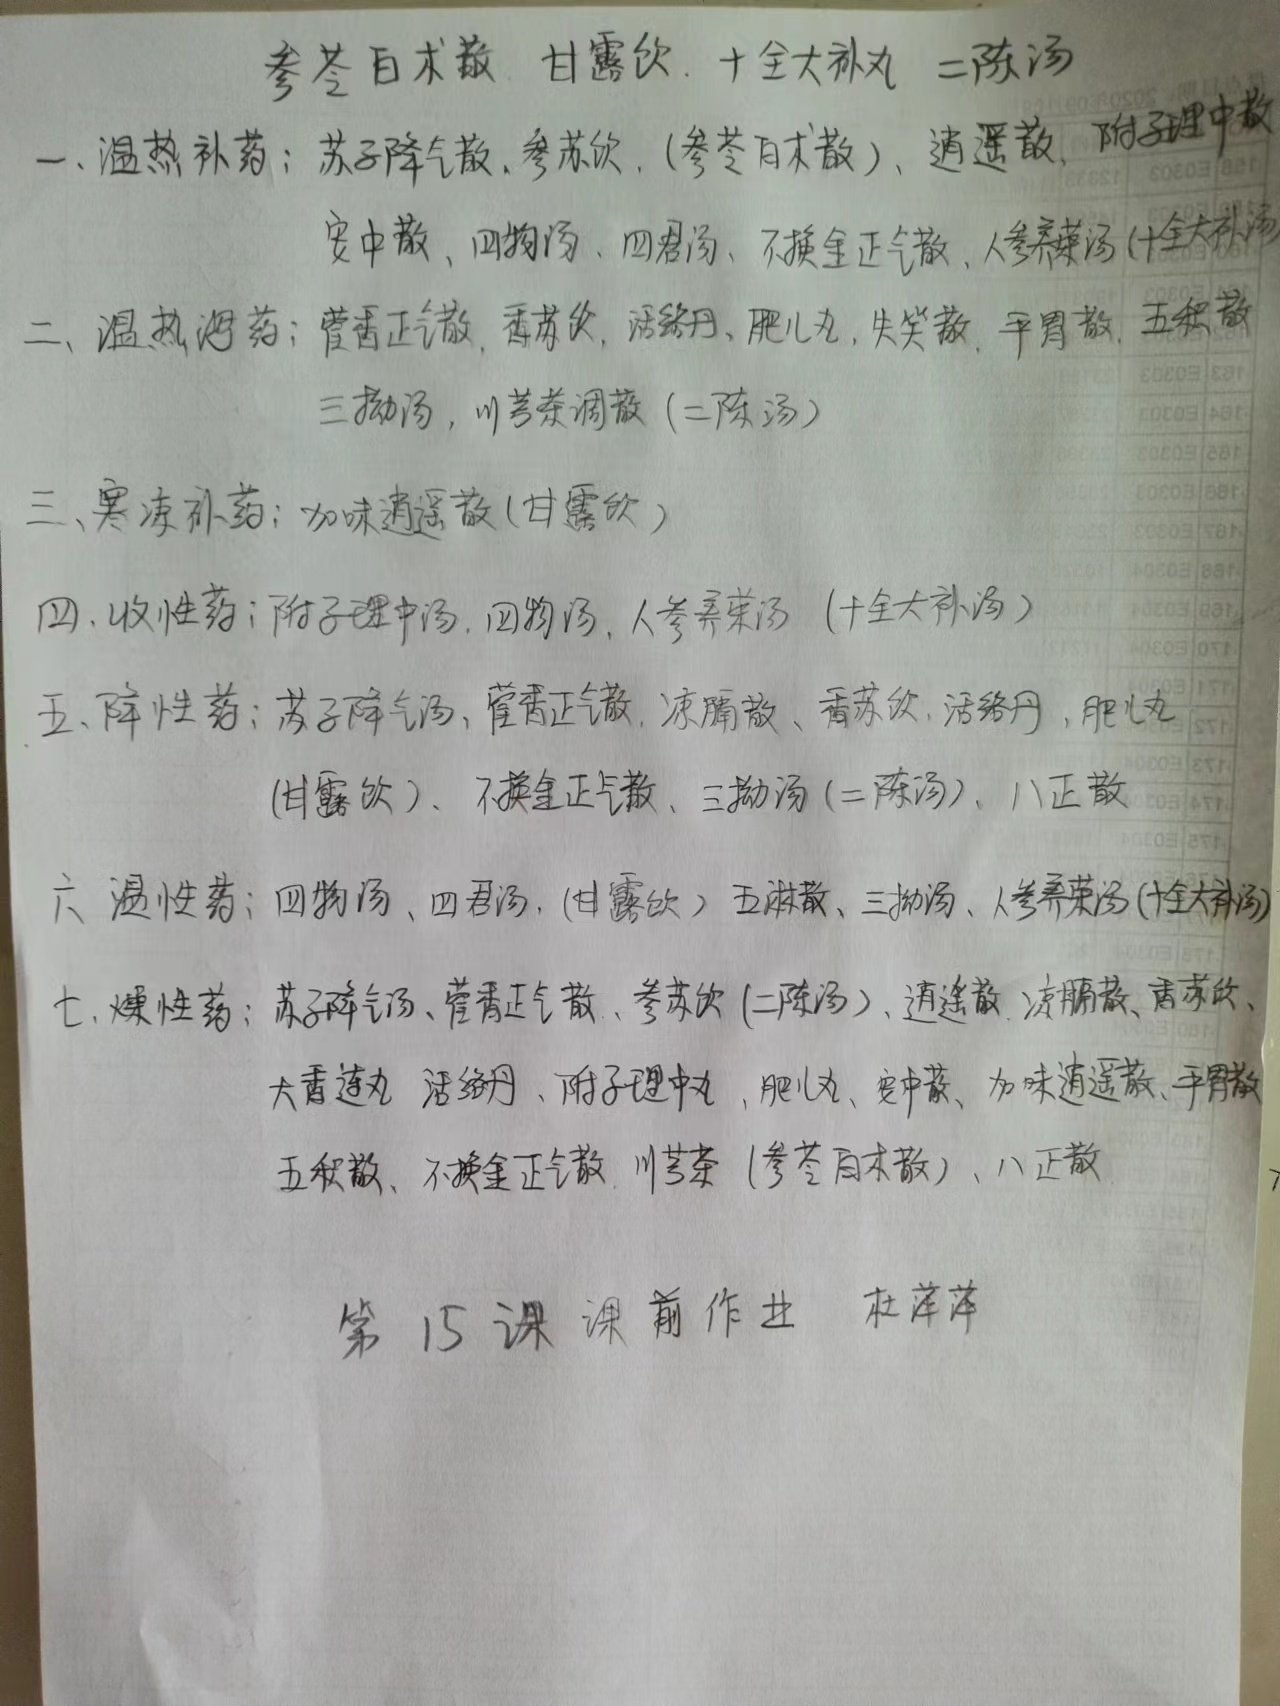 参苓白术散 甘露饮. 十全大补丸 二陈汤
一、温热补药；苏子降气散、参苏饮，(参苓白术散)、逍遥散、附子理中散
安中散、四物汤、四君汤、不换金正气散、人参养荣汤(十全大补汤
二、温热泻药；藿香正气散、香苏饮，活络丹、肥儿丸，失笑散、平胃散、五积散
三拗汤，川芎茶调散(二陈汤)
三、寒凉补药；加味逍遥散(甘露饮)
四、收性药；附子理中汤、四物汤、人参养荣汤 (十全大补汤)
五、降性药；苏子降气汤、藿香正气散、凉膈散、香苏饮、活络丹，肥儿丸
(甘露饮)、不换金正气散、三拗汤(二陈汤)、八正散
六 湿性药；四物汤、四君汤，(甘露饮) 五淋散、三拗汤、人参养荣汤(十全大补汤)
七、燥性药；苏子降气汤、藿香正气散、参苏饮(二陈汤)、逍遥散、凉膈散、香苏饮、
大香连丸 活络丹、附子理中丸，肥儿丸、安中散、加味逍遥散、平胃散
五积散、不换金正气散、川芎茶 (参苓白术散)、八正散
第 15 课 课前作业 杜萍萍